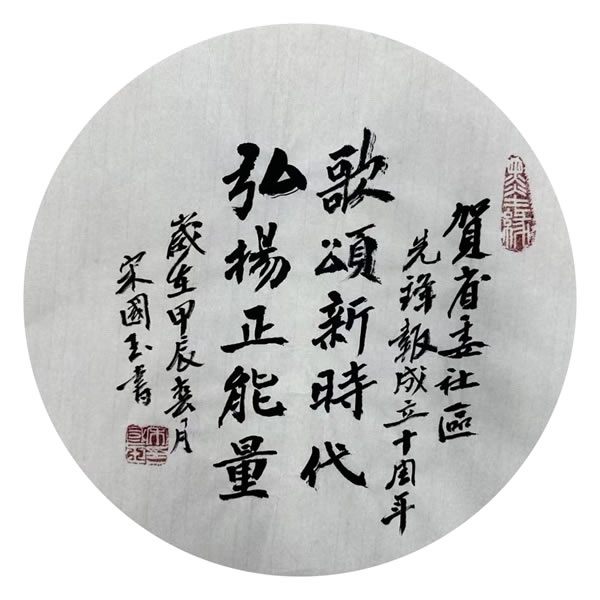 賀省委社區
先鋒報成立十周年
歌頌新時代
弘揚正能量
歲在甲辰春月
宋國玉書